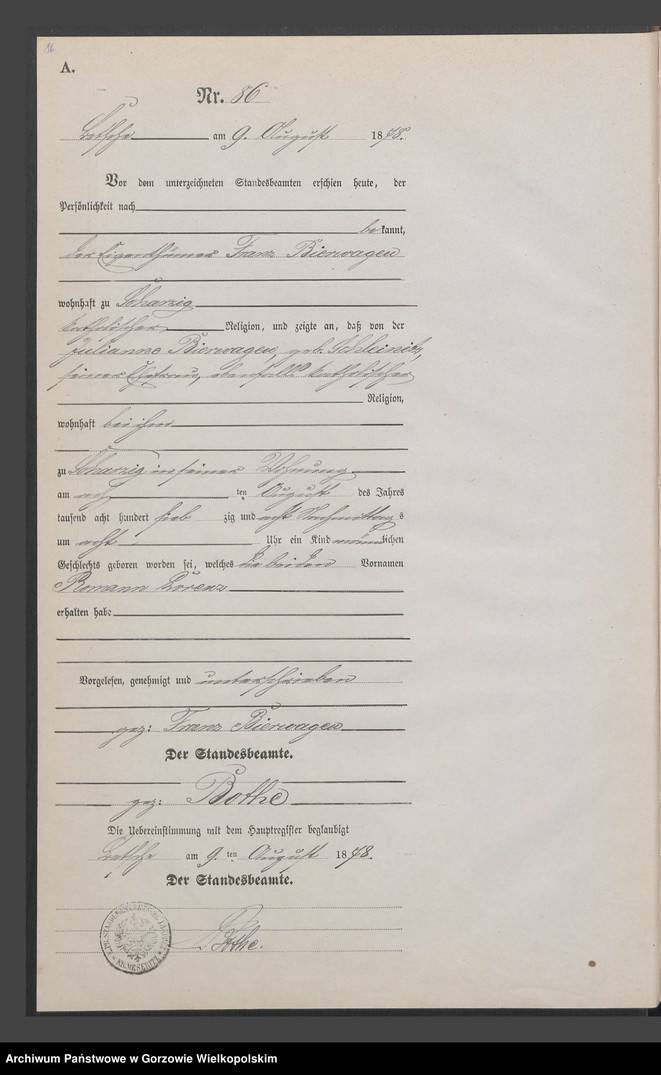 16
A.
Nr. 86
Betsche am 9. August 1878.
Vor dem unterzeichneten Standesbeamten erschien heute, der
Persönlichkeit nach
bekannt,
der Eigenthümer Franz Bierwagen
wohnhaft zu Scharzig
katholischer Religion, und zeigte an, daß von der
Julianne Bierwagen, geb. Schleinitz,
seiner Ehefrau, ebenfalls katholischer
Religion,
wohnhaft bei ihm
zu Scharzig in seiner Wohnung
am acht ten August des Jahres
tausend acht hundert sieb zig und acht Nachmittags
um acht Uhr ein Kind männlichen
Geschlechts geboren worden sei, welches die beiden Vornamen
Romann Lorenz
erhalten habe
Vorgelesen, genehmigt und unterschrieben
gez: Franz Bierwagen
Der Standesbeamte.
gez: Bothe
Die Uebereinstimmung mit dem Hauptregister beglaubigt
Betsche am 9. ten August 1878.
Der Standesbeamte.
Bothe.
KR. MESERITZ
Archiwum Państwowe w Gorzowie Wielkopolskim